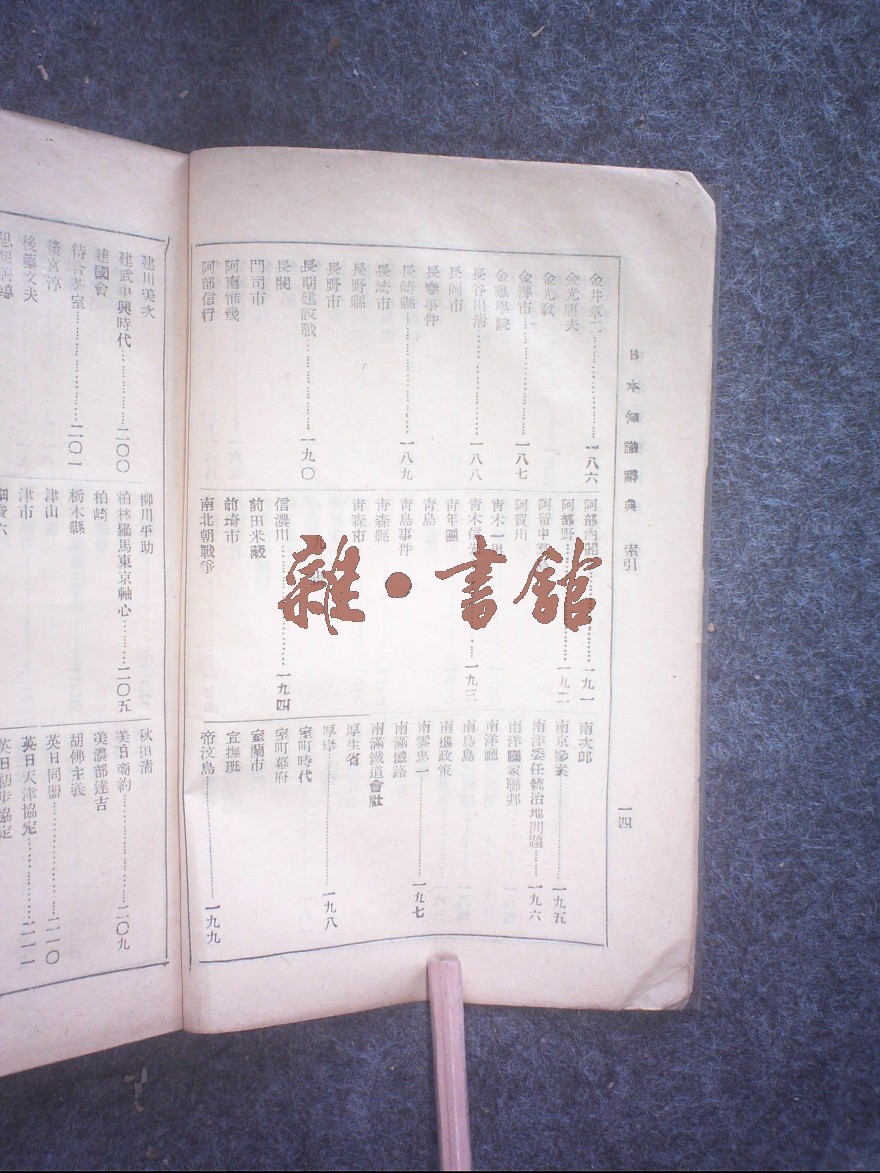 日本知識辭典 索引
一四
金井章二……一八六
金光庸夫
金光教
金澤市……一八七
金雞學院
長谷川清……一八八
長岡市
長鼓峯事件
長崎縣……一八九
長崎市
長野縣
長野市
長期建設戰……一九〇
長閥
門司市
阿南惟幾
阿部信行
阿部內閣……一九一
阿部野……一九二
阿留申
阿賀川
青木一男
青木信……一九三
青年團
青島
青島事件
青森縣
青森市
信濃川……一九四
前田米藏
前埼市
南北朝戰爭
南次郎
南京慘案……一九五
南洋委任統治地問題……一九六
南洋國家聯邦
南洋廳
南鳥島
南進政策
南雲忠一……一九七
南滿鐵路
南滿鐵道會社
厚生省
厚岸……一九八
室町時代
室町幕府
室蘭市
宣撫班
帝汶島……一九九
建川美次
建武中興時代……二〇〇
建國會
待合茶室……二〇一
後宮淳
後藤文夫
思想善導
柳川平助
柏林羅馬東京軸心……二〇五
柏崎
栃木縣
津山
津市
秋田清
美日商約……二〇九
美濃部達吉
胡佛主義
英日同盟……二一〇
英日天津協定……二一一
英日初步協定
雜·書館